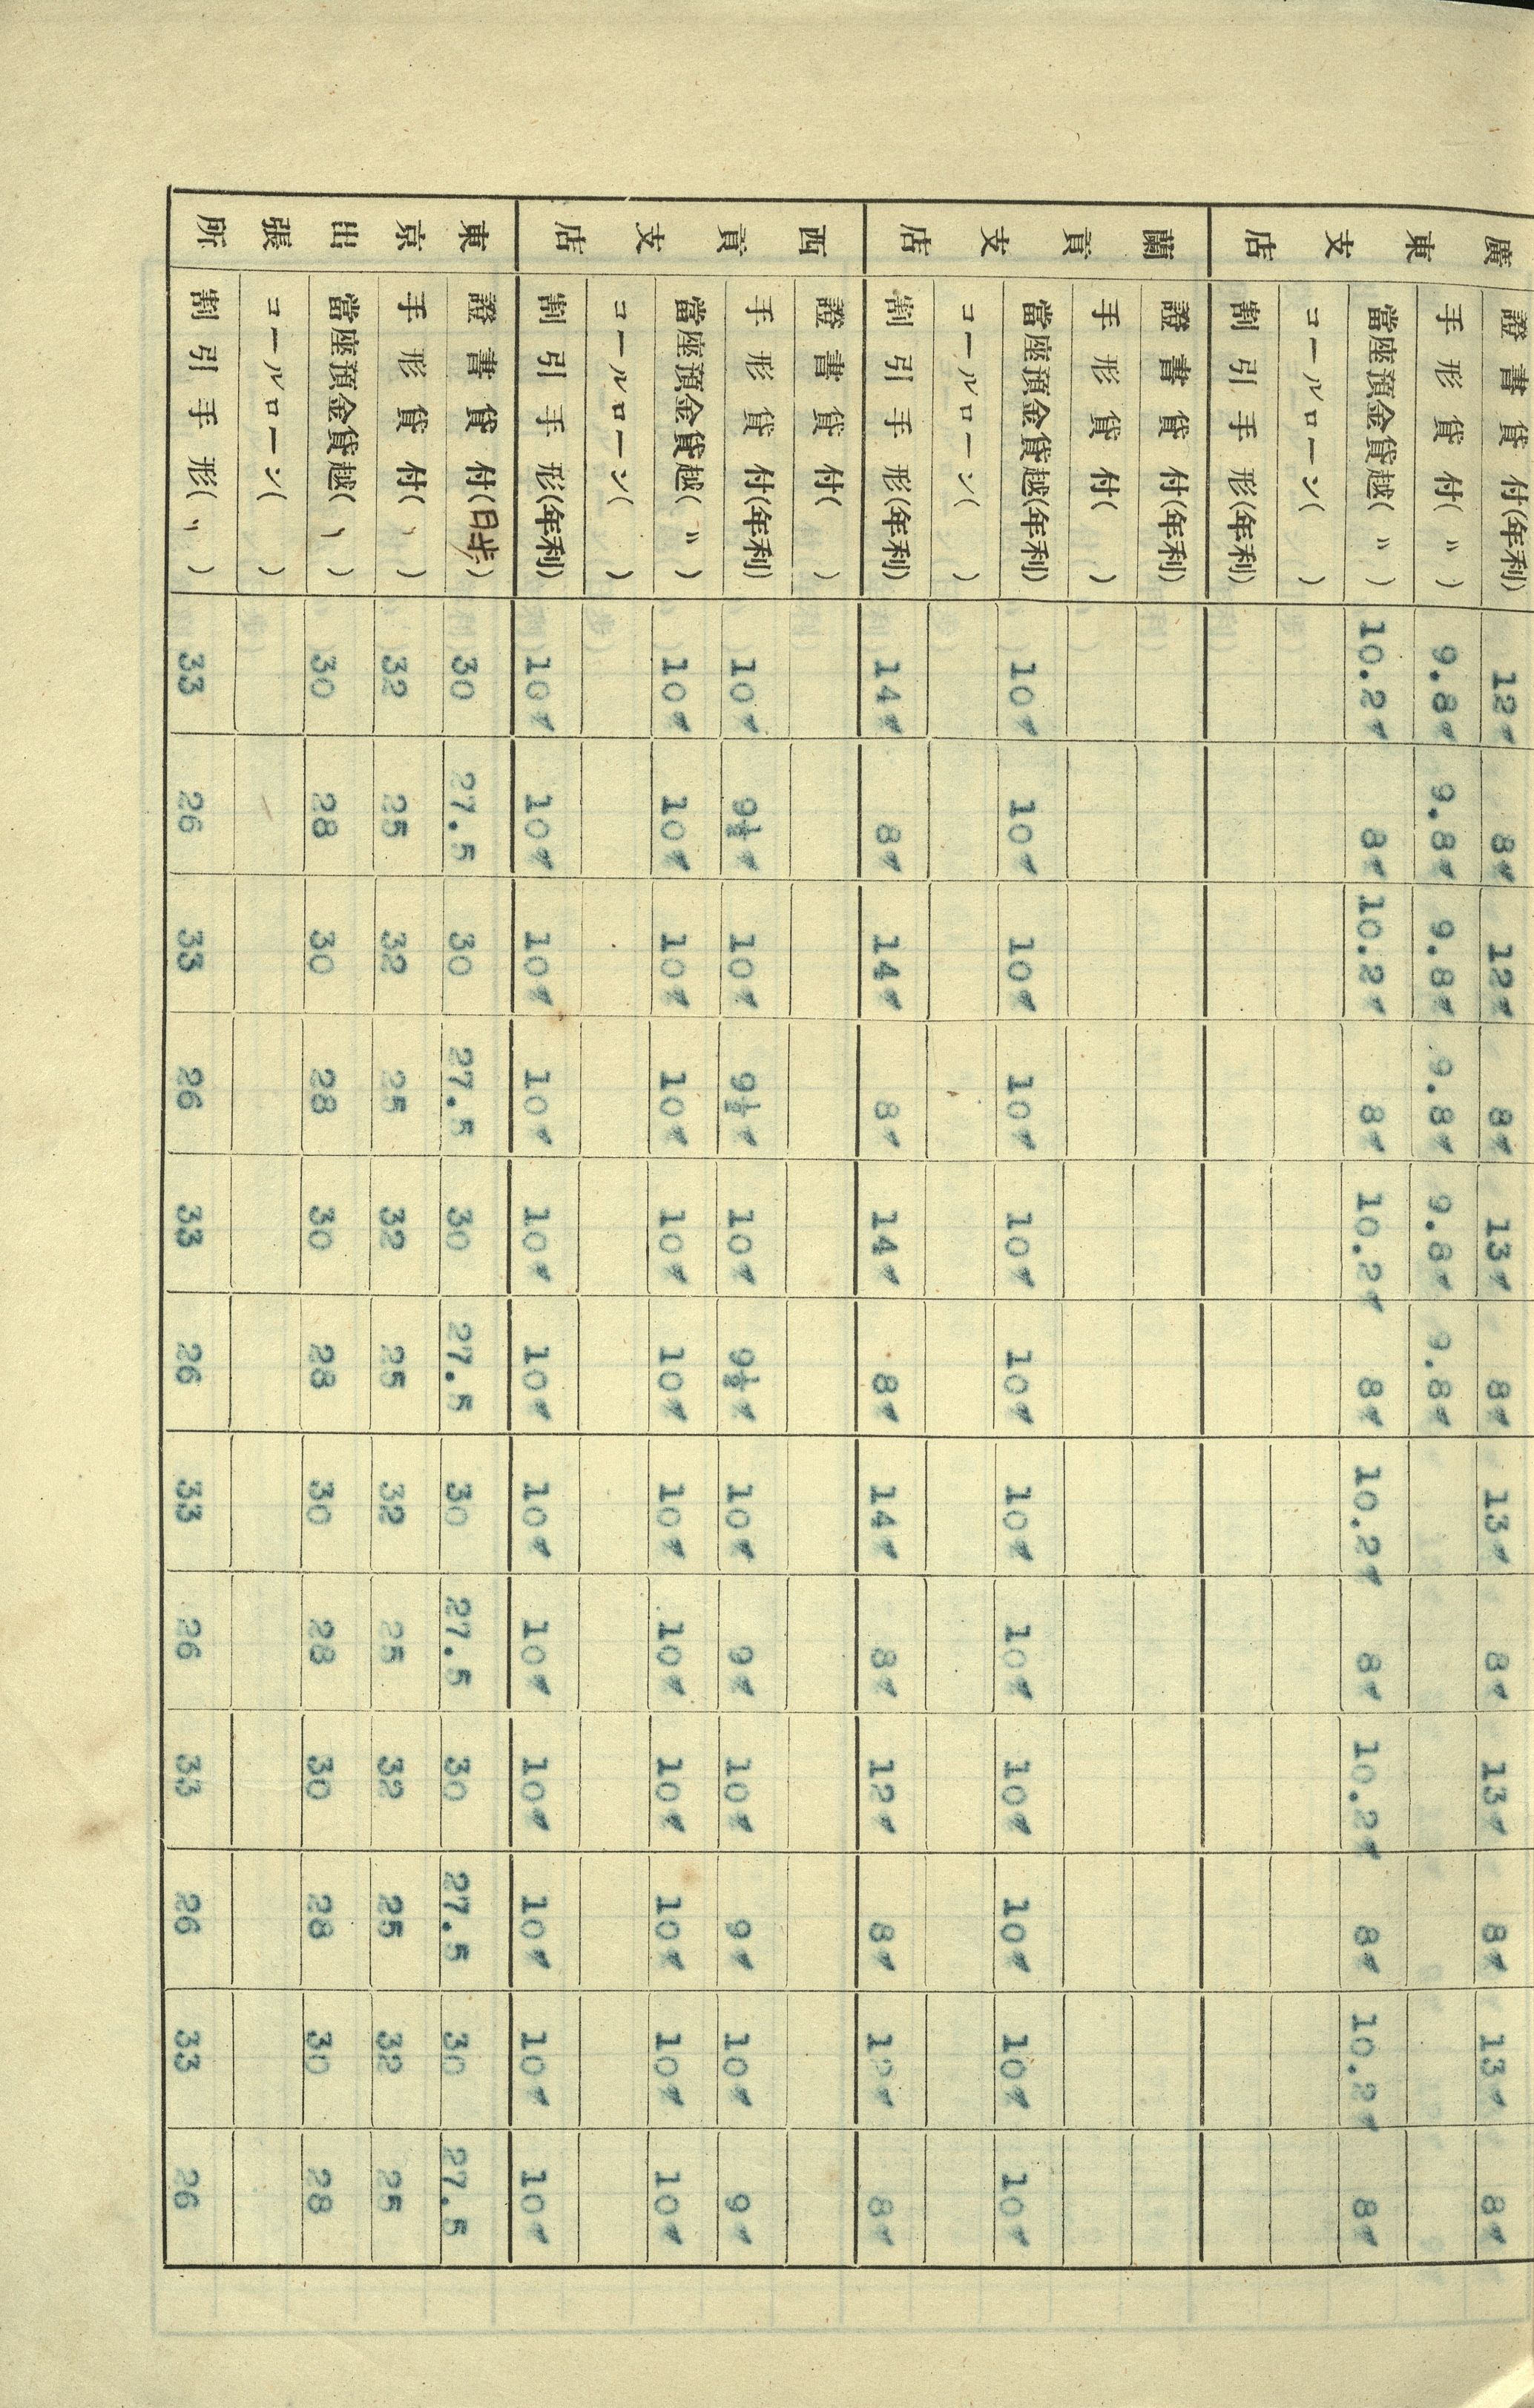 廣東支店
證書貸付(年利) 12% 8% 12% 8% 13% 8% 13% 8% 13% 8% 13% 8%
手形貸付(〃) 9.8% 9.8% 9.8% 9.8% 9.8% 9.8%
當座預金貸越(〃) 10.2% 8% 10.2% 8% 10.2% 8% 10.2% 8% 10.2% 8% 10.2% 8%
コールローン( )
割引手形(年利)
蘭貢支店
證書貸付(年利)
手形貸付( )
當座預金貸越(年利) 10% 10% 10% 10% 10% 10% 10% 10% 10% 10% 10% 10%
コールローン( )
割引手形(年利) 14% 8% 14% 8% 14% 8% 14% 8% 12% 8% 12% 8%
西貢支店
證書貸付( )
手形貸付(年利) 10% 9½% 10% 9½% 10% 9½% 10% 9% 10% 9% 10% 9%
當座預金貸越(〃) 10% 10% 10% 10% 10% 10% 10% 10% 10% 10% 10% 10%
コールローン( )
割引手形(年利) 10% 10% 10% 10% 10% 10% 10% 10% 10% 10% 10% 10%
東京出張所
證書貸付(日歩) 30 27.5 30 27.5 30 27.5 30 27.5 30 27.5 30 27.5
手形貸付(〃) 32 25 32 25 32 25 32 25 32 25 32 25
當座預金貸越(〃) 30 28 30 28 30 28 30 28 30 28 30 28
コールローン( )
割引手形(〃) 33 26 33 26 33 26 33 26 33 26 33 26